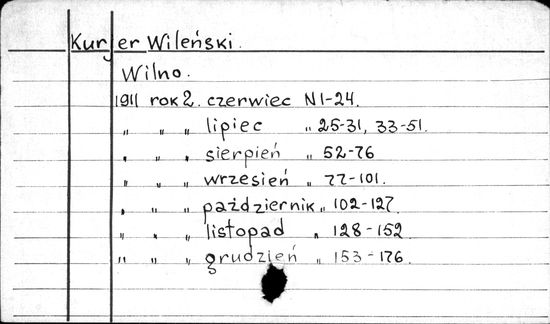 Kurjer Wileński.
Wilno.
1911 rok 2. czerwiec N 1-24.
" " " lipiec " 25-31, 33-51.
" " " sierpień " 52-76
" " " wrzesień " 77-101.
" " " październik " 102-127.
" " " listopad " 128-152
" " " grudzień " 153-176.